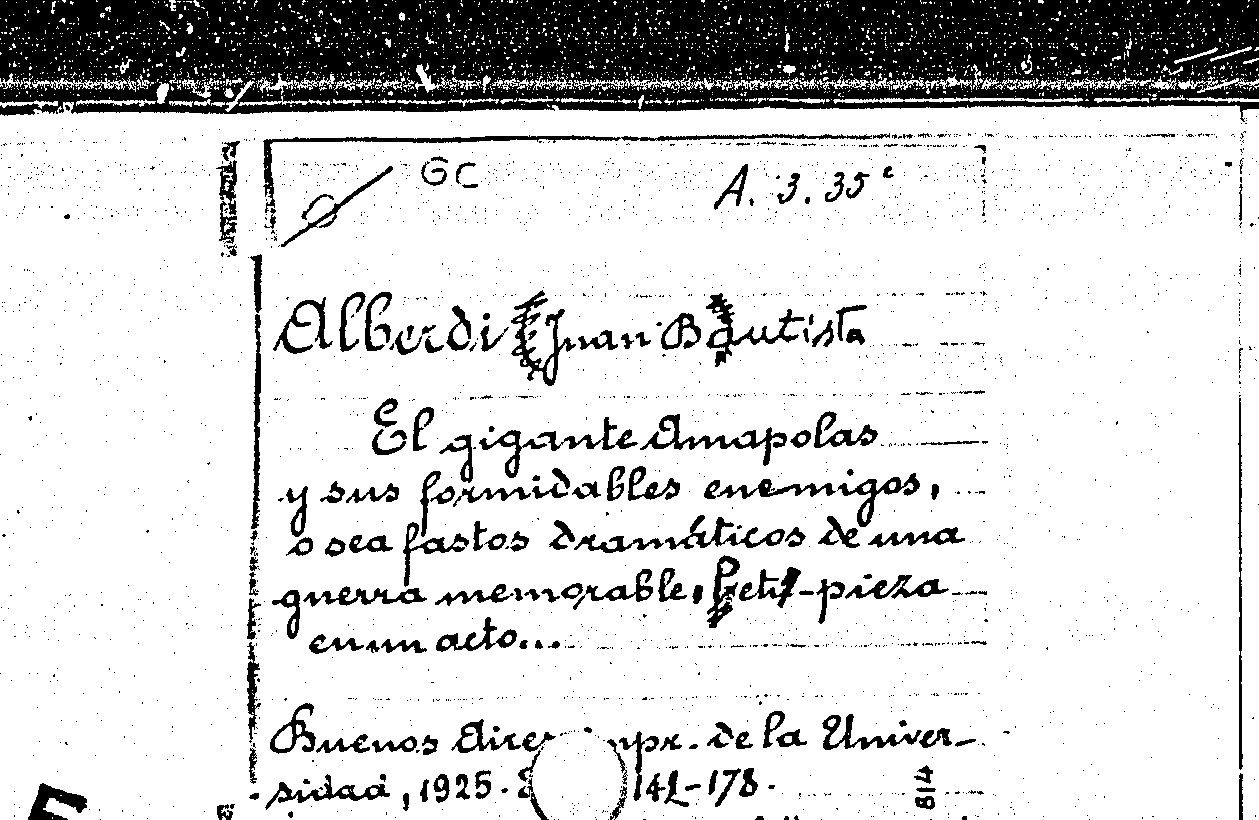 GC A. 3. 35ᶜ
Alberdi Juan Bautista
El gigante Amapolas
y sus formidables enemigos,
o sea fastos dramáticos de una
guerra memorable, Peti-pieza
en un acto...
Buenos Aires impr. de la Univer-
sidad, 1925. 142-178.
814